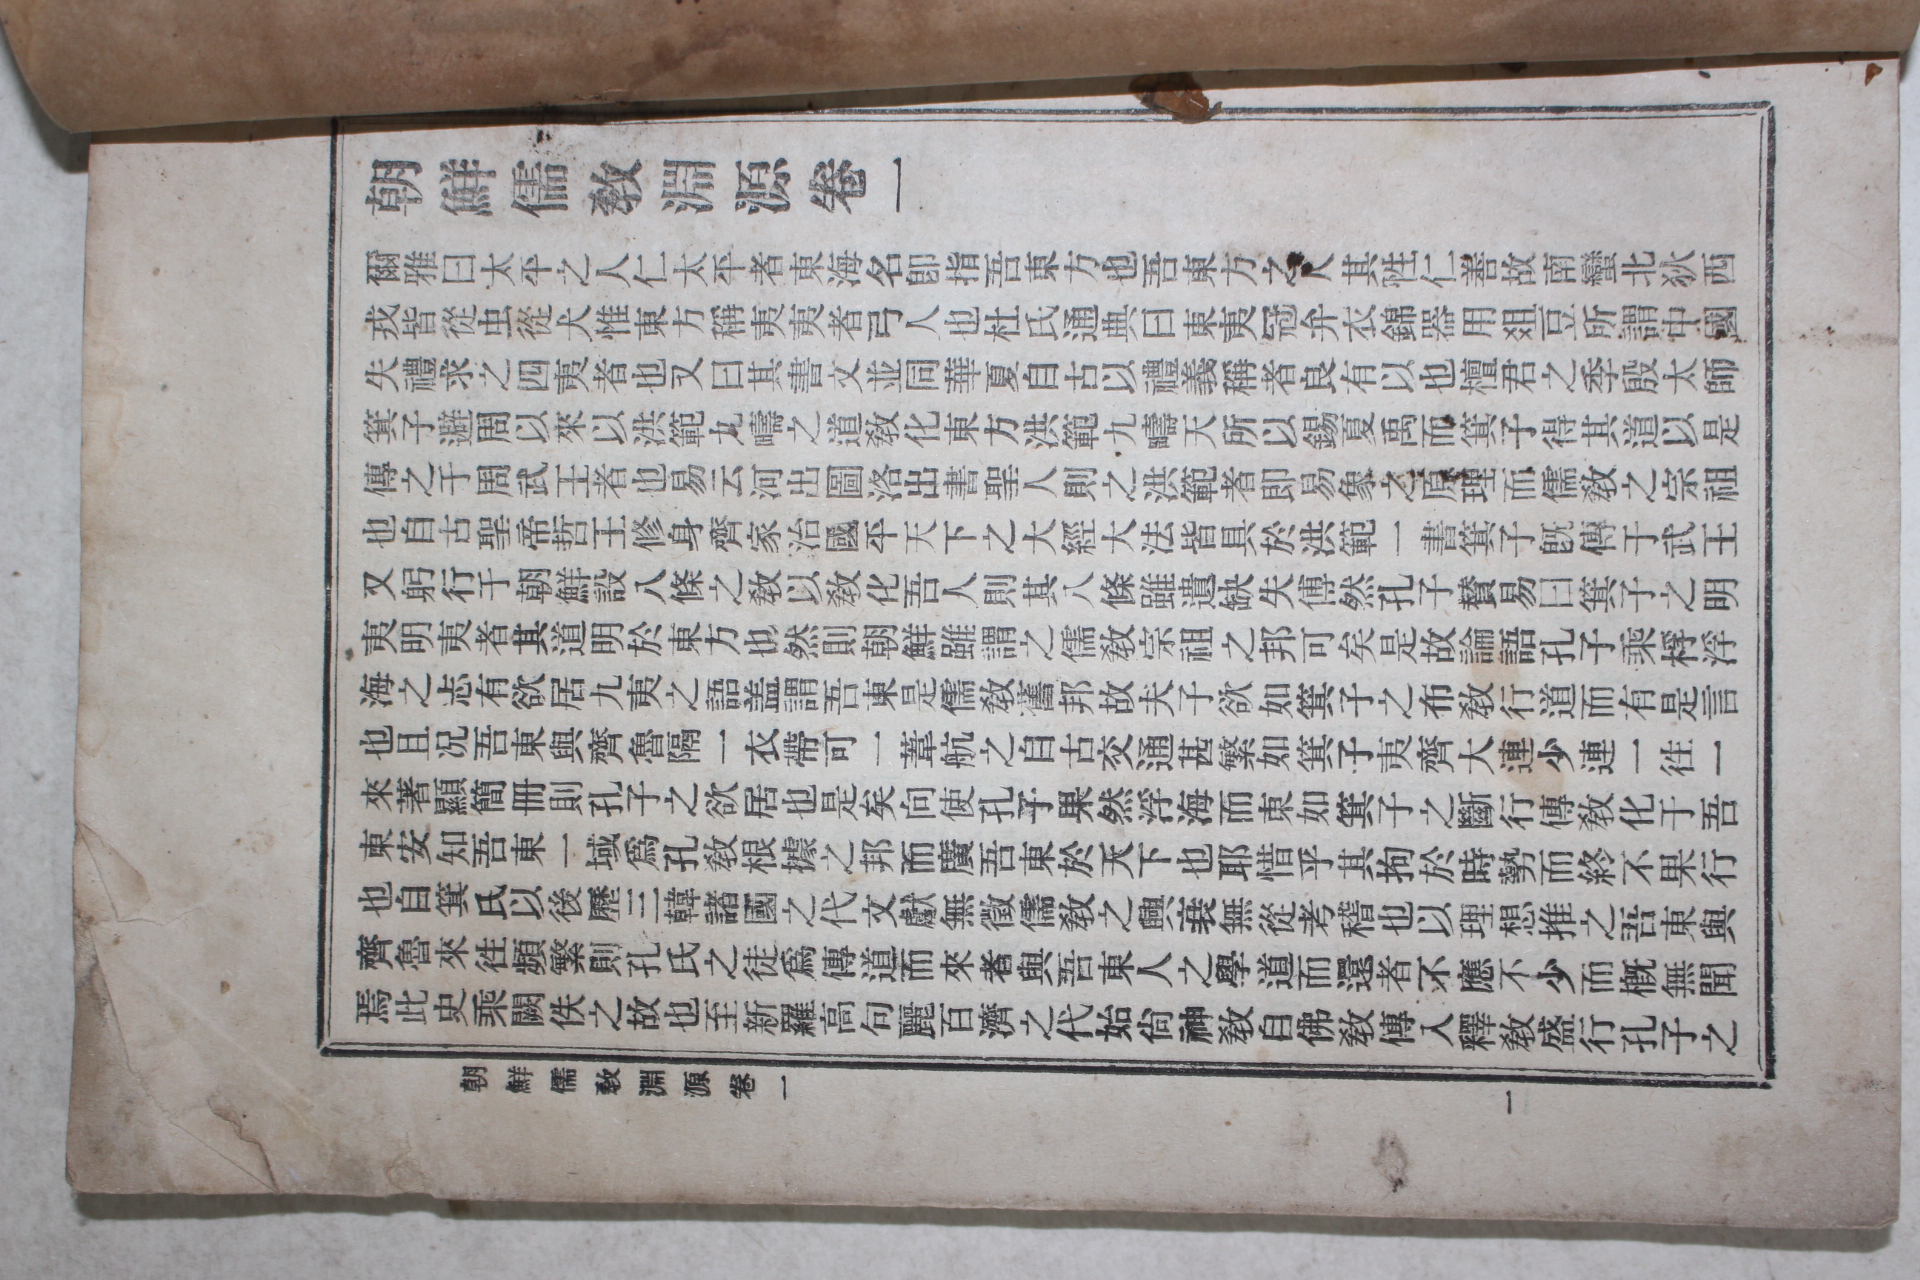 朝鮮儒敎淵源卷一
爾雅曰太平之人仁太平者東海名卽指吾東方也吾東方之人其性仁善故南蠻北狄西
戎皆從虫從犬惟東方稱夷夷者弓人也杜氏通典曰東夷冠弁衣錦器用俎豆所謂中國
失禮求之四夷者也又曰其書文並同華夏自古以禮義稱者良有以也檀君之季殷太師
箕子避周以來以洪範九疇之道敎化東方洪範九疇天所以錫夏禹而箕子得其道以是
傳之于周武王者也易云河出圖洛出書聖人則之洪範者即易象之原理而儒敎之宗祖
也自古聖帝哲王修身齊家治國平天下之大經大法皆具於洪範一書箕子旣傳于武王
又躬行于朝鮮設八條之敎以敎化吾人則其八條雖遺缺失傳然孔子贊易曰箕子之明
夷明夷者其道明於東方也然則朝鮮雖謂之儒敎宗祖之邦可矣是故論語孔子乘桴浮
海之志有欲居九夷之語盖謂吾東是儒敎舊邦故夫子欲如箕子之布敎行道而有是言
也且况吾東與齊魯隔一衣帶可一葦航之自古交通甚繁如箕子夷齊大連少連一徃一
來著顯簡冊則孔子之欲居也是矣向使孔子果然浮海而東如箕子之斷行傳敎化于吾
東安知吾東一域爲孔敎根據之邦而廣吾東於天下也耶惜乎其拘於時勢而終不果行
也自箕氏以後歷三韓諸國之代文獻無徵儒敎之興衰無從考稽也以理想推之吾東與
齊魯來徃頻繁則孔氏之徒爲傳道而來者與吾東人之學道而還者不應不少而槪無聞
焉此史乘闕佚之故也至新羅高句麗百濟之代始尙神敎自佛敎傳入釋敎盛行孔子之
朝鮮儒敎淵源卷一
一